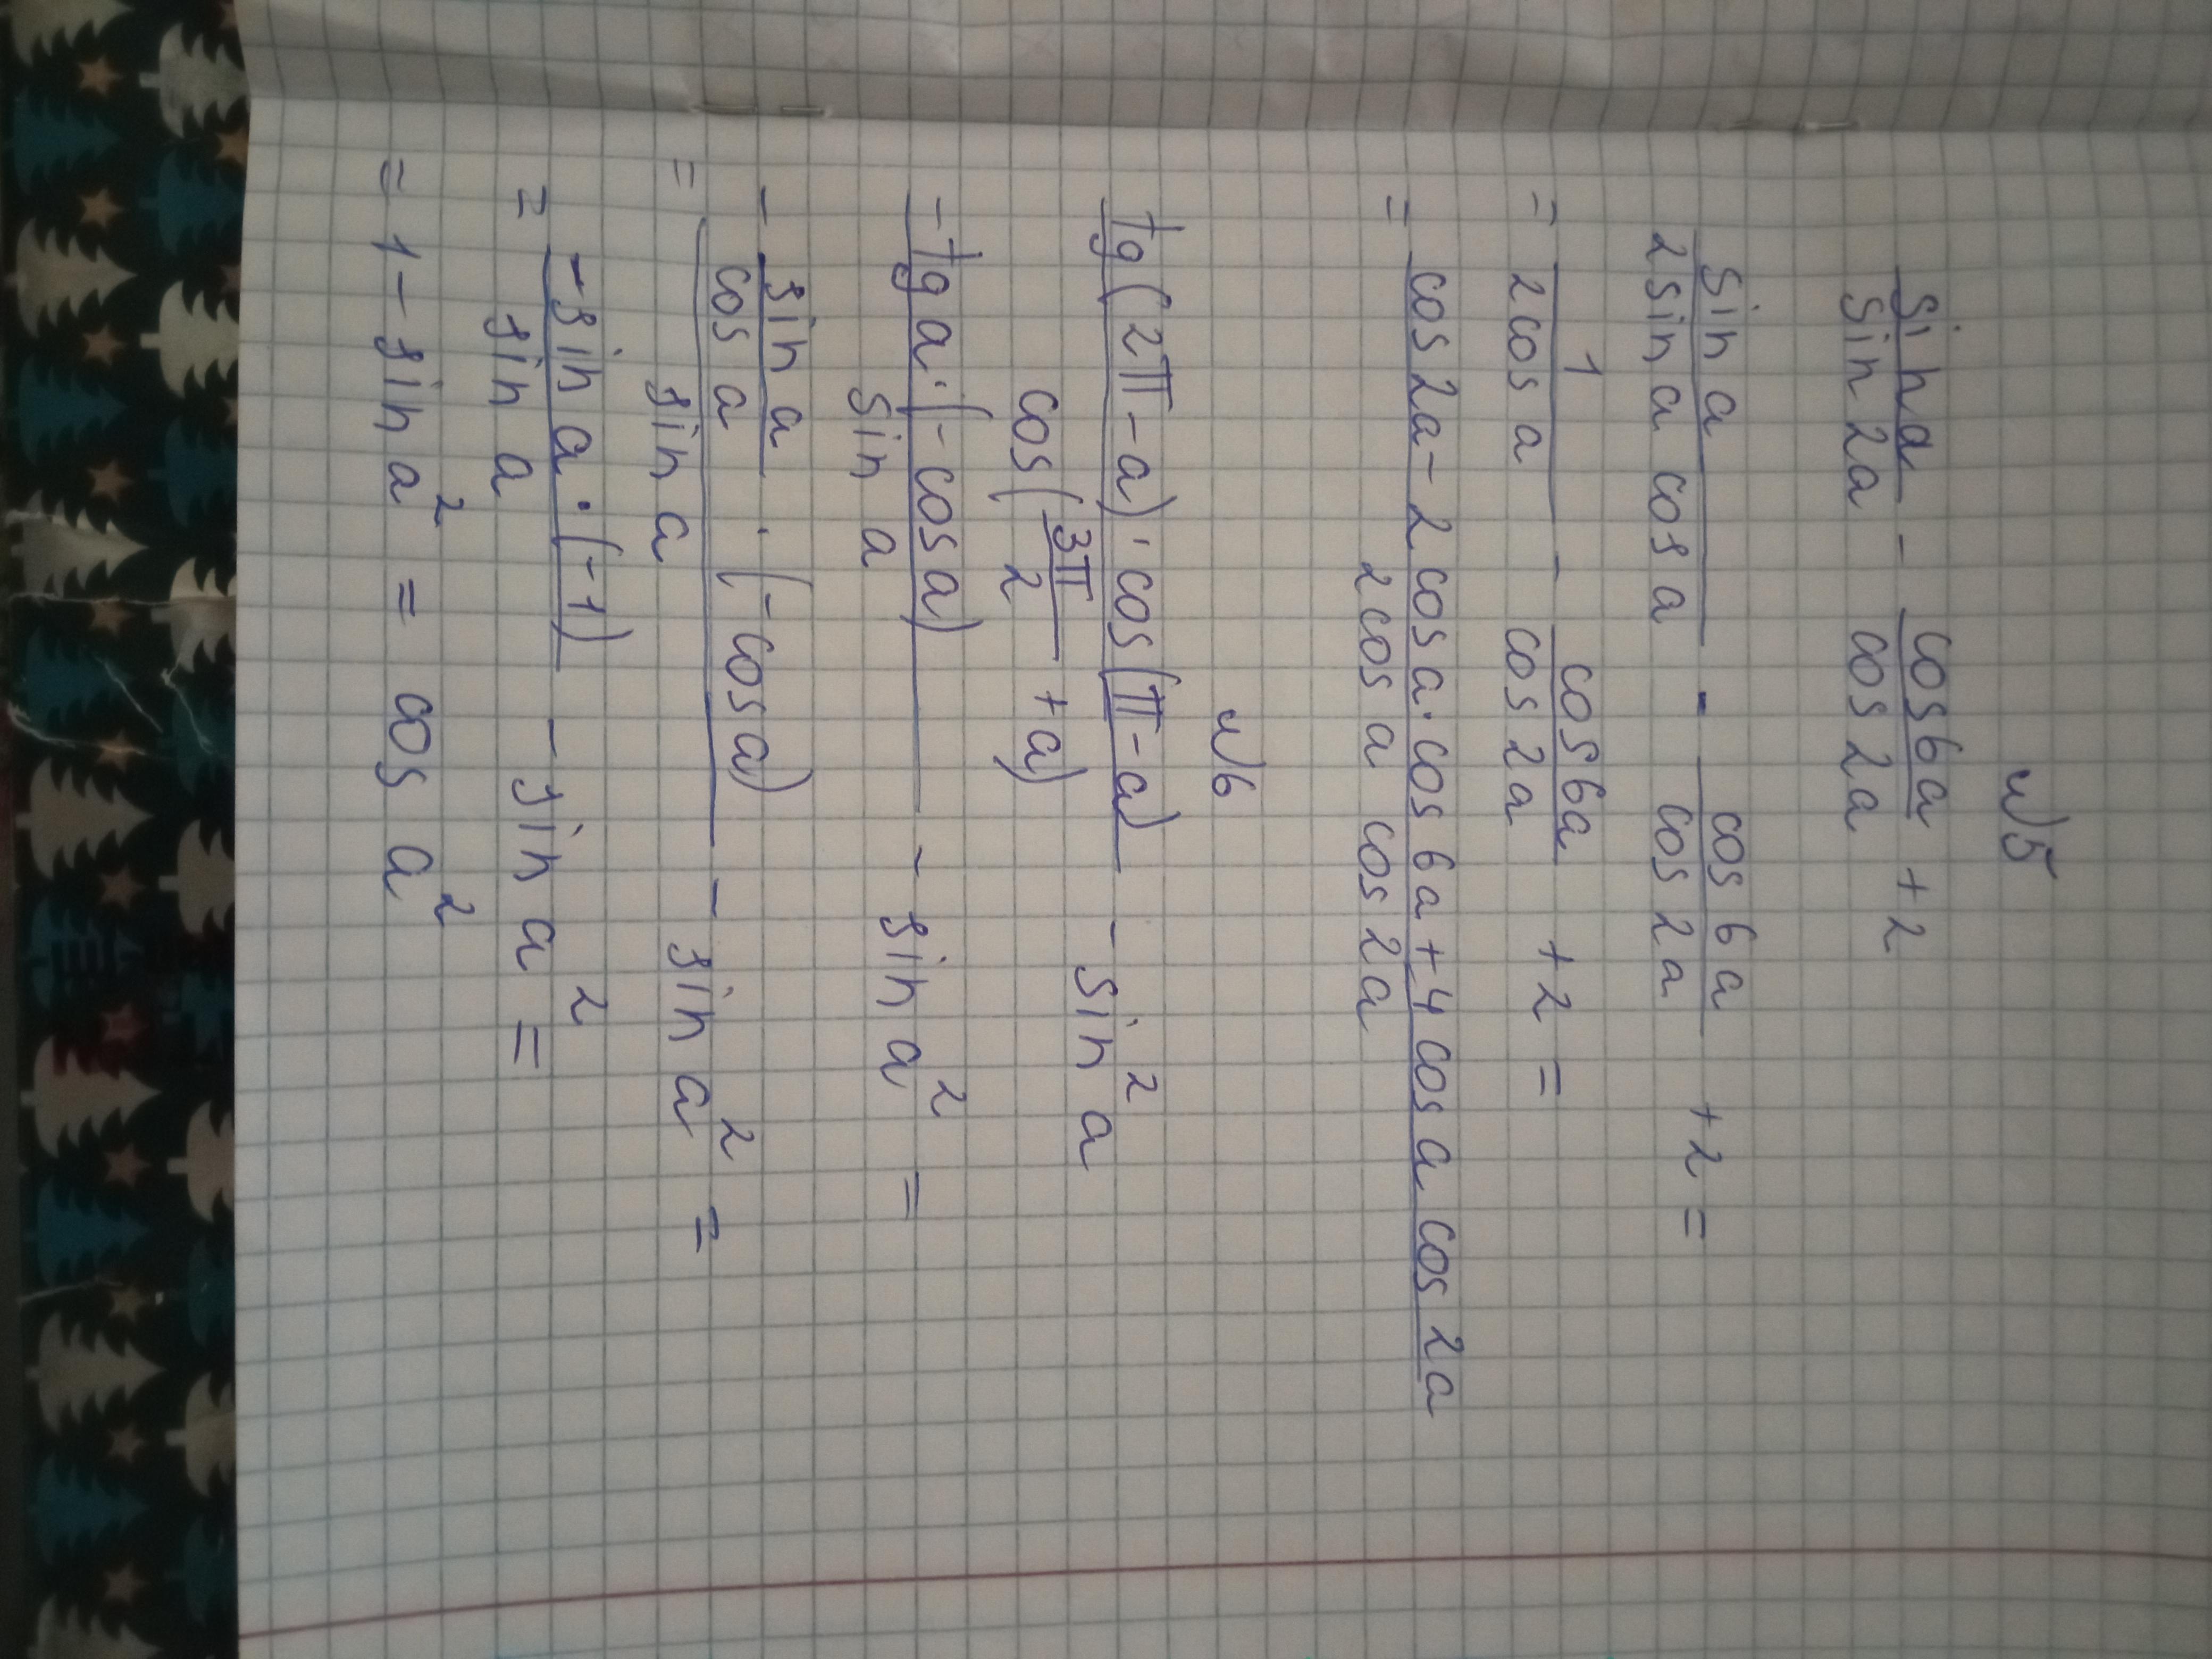 №5
sin a / sin 2a - cos 6a / cos 2a + 2
sin a / 2 sin a cos a - cos 6a / cos 2a + 2 =
= 1 / 2 cos a - cos 6a / cos 2a + 2 =
= cos 2a - 2 cos a · cos 6a + 4 cos a cos 2a / 2 cos a cos 2a
№6
tg (2π - a) · cos (π - a) / cos (3π/2 + a) - sin² a
- tg a · (- cos a) / sin a - sin a² =
= - sin a / cos a · (- cos a) / sin a - sin a² =
= - sin a · (-1) / sin a - sin a² =
= 1 - sin a² = cos a²